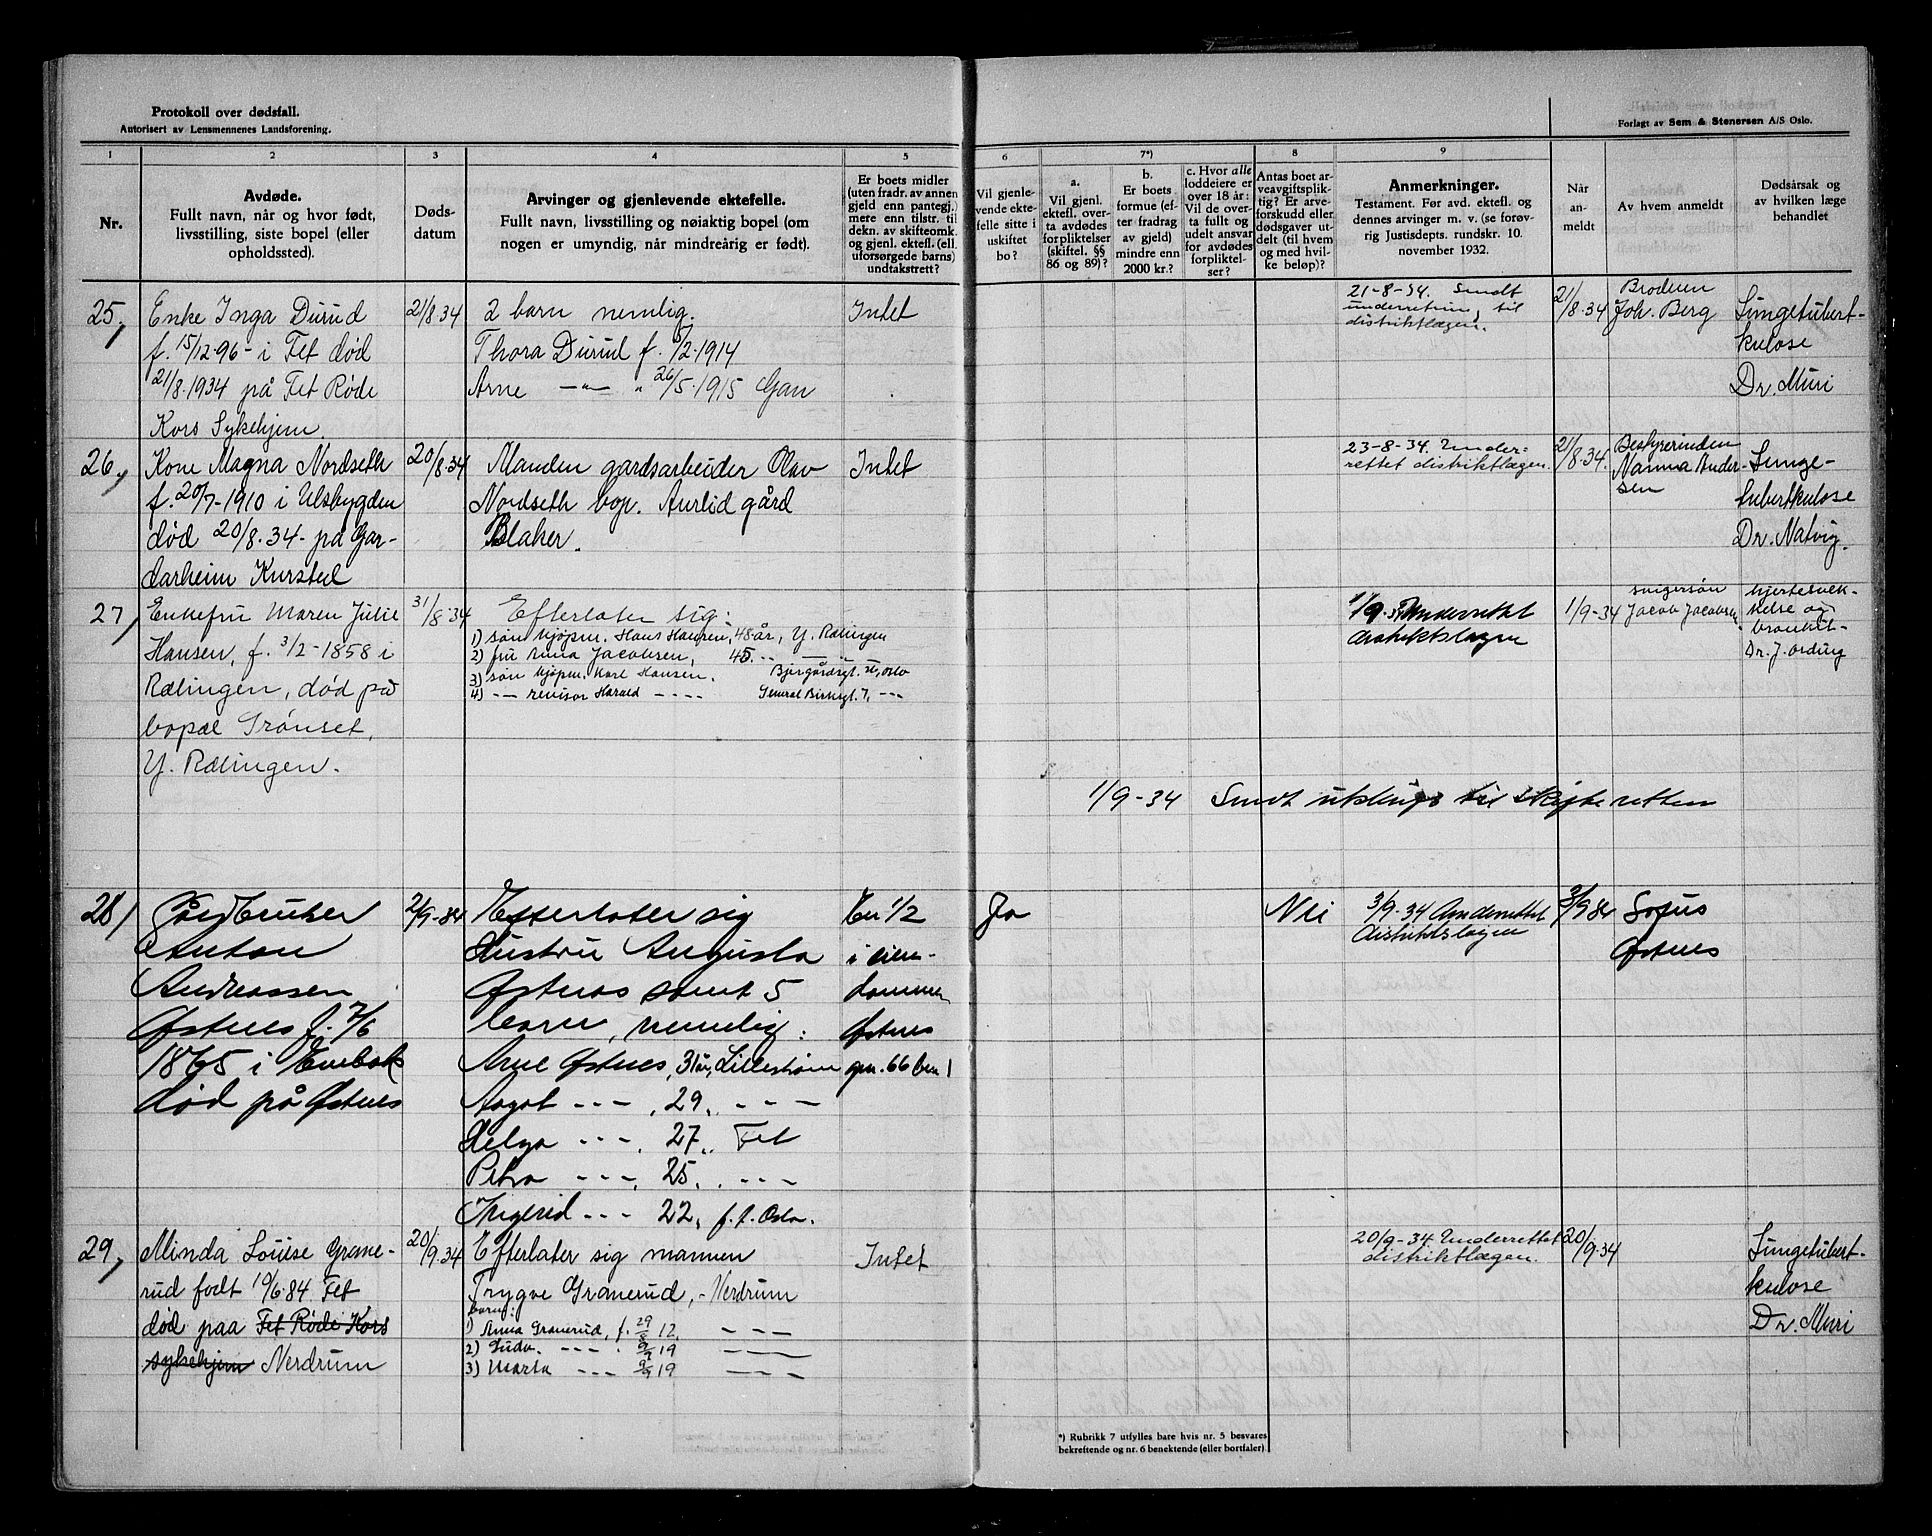 Protokoll over dødsfall.
Autorisert av Lensmennenes Landsforening.
Forlagt av Sem & Stenersen A/S Oslo.
1
2
3
4
5
6
7*)
8
9
Nr.
Avdøde.
Fullt navn, når og hvor født,
livsstilling, siste bopel (eller
opholdssted).
Døds-
datum
Arvinger og gjenlevende ektefelle.
Fullt navn, livsstilling og nøiaktig bopel (om
nogen er umyndig, når mindreårig er født).
Er boets midler
(uten fradr. av annen
gjeld enn pantegj.)
mere enn tilstr. til
dekn. av skifteomk.
og gjenl. ektefl. (ell.
uforsørgede barns)
undtakstrett?
Vil gjenle-
vende ekte-
felle sitte i
uskiftet
bo?
a.
Vil gjenl.
ektefl. over-
ta avdødes
forpliktelser
(skiftel. §§
86 og 89)?
b.
Er boets
formue (ef-
ter fradrag
av gjeld)
mindre enn
2000 kr.?
c. Hvor alle
loddeiere er
over 18 år:
Vil de over-
ta fullt og
udelt ansvar
for avdødes
forpliktel-
ser?
Antas boet ar-
veavgiftsplik-
tig? Er arve-
forskudd eller
dødsgaver ut-
delt (til hvem
og med hvil-
ke beløp)?
Anmerkninger.
Testament. Før avd. ektefl. og
dennes arvinger m. v. (se forøv-
rig Justisdepts. rundskr. 10.
november 1932.
Når
an-
meldt
Av hvem anmeldt
Dødsårsak og
av hvilken læge
behandlet
25,
Enke Inga Dürud
f. 15/12-96- i Fet død
21/8.1934 på Fet Røde
Kors Sykehjem
21/8.34
2 barn nemlig.
Thora Dürud f. /2.1914
Arne —"— " 26/5.1915 Gan
Intet
21-8-34. Sendt
underretning til
distriktlægen.
21/8.34
Broderen
Joh. Berg
Lungetubert-
kulose
Dr. Müri
26,
Kone Magna Nordseth
f. 20/7-1910 i Ulsbygden
død 20/8.34- på Gar-
darheim Kursted
20/8.34
Manden gardsarbeider Olav
Nordseth bop. Aurlid gård
Blaker.
Intet
23-8-34. Under-
rettet distriktlægen.
21/8.34.
Bestyrerinden
Nanna Ander-
sen
Lunge-
tubertkulose
Dr. Natvig.
27,
Enkefru Maren Julie
Hansen, f. 3/2-1858 i
Rælingen, død på
bopæl Grønset,
Y. Rælingen.
31/8.34
Efterlater sig:
1) søn kjøpm. Hans Hansen, 48 år, Y. Rælingen
2) fru Anna Jacobsen, 45 .. — —
3) søn kjøpm. Karl Hansen. Oslo
4) -- revisor Harald ---- General Birchsgt. 7, ---
1/9-34 Underrettet
distriktslægen
1/9-34
svigersøn
Jacob Jacobsen
hjertesvek-
kelse og
bronkit-
Dr. J. Ording
1/9-34 Sendt utskrift til skifteretten
28/
Gårdbruker
Anton
Andreassen
Østnes f. 7/6
1865 i Enebak
død på Østnes
2/9-34
Efterlater sig
hustru Augusta
Østnes samt 5
barn, nemlig:
Arne Østnes, 31 år, Lillestrøm
Aagot --- , 29 .. - - -
Helga --- . 27 .. Fet
Petra --- , 25 .. - - -
Ingerid --- 22, f.t. Oslo.
Er 1/2
i eien-
dommen
Østnes
gnr. 66 bnr 1
Ja
Nei
3/9-34 Underrettet
distriktslægen
3/9 34
Østnes
29,
Minda Louise Grane-
rud født 19/6.84 Fet
død paa Fet Røde Kors
sykehjem Nerdrum
20/9.34
Efterlater sig mannen
Trygve Granerud, - Nerdrum
barn:
1) Anna Granerud, f. 29/8 12. - - -
2) --- . 9/9 19 - - -
3) Marta --- 9/9 19 - - -
Intet
20/9-34 Underrettet
distriktlægen.
20/9.34
Lungetubert-
kulose
Dr. Müri
*) Rubrikk 7 utfylles bare hvis nr. 5 besvares
bekreftende og nr. 6 benektende (eller bortfaler)